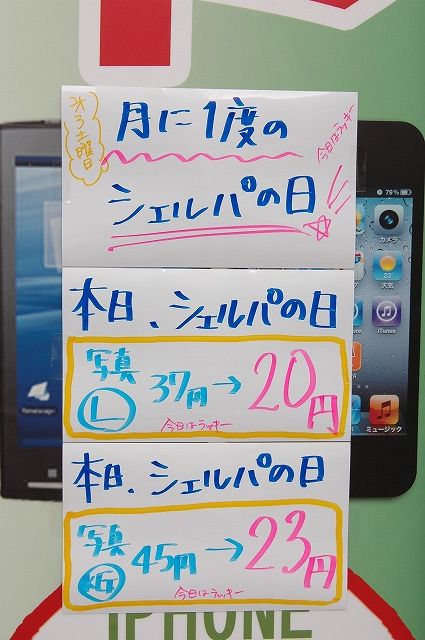 オ3土曜日
月に1度の
今日はラッキー
シェルパの日
本日、シェルパの日
写真
L
37円→20円
今日はラッキー
本日、シェルパの日
写真
45円→23円
今日はラッキー
79%
カメラ
23°
天気
iTunes
ミュージック
IPHONE